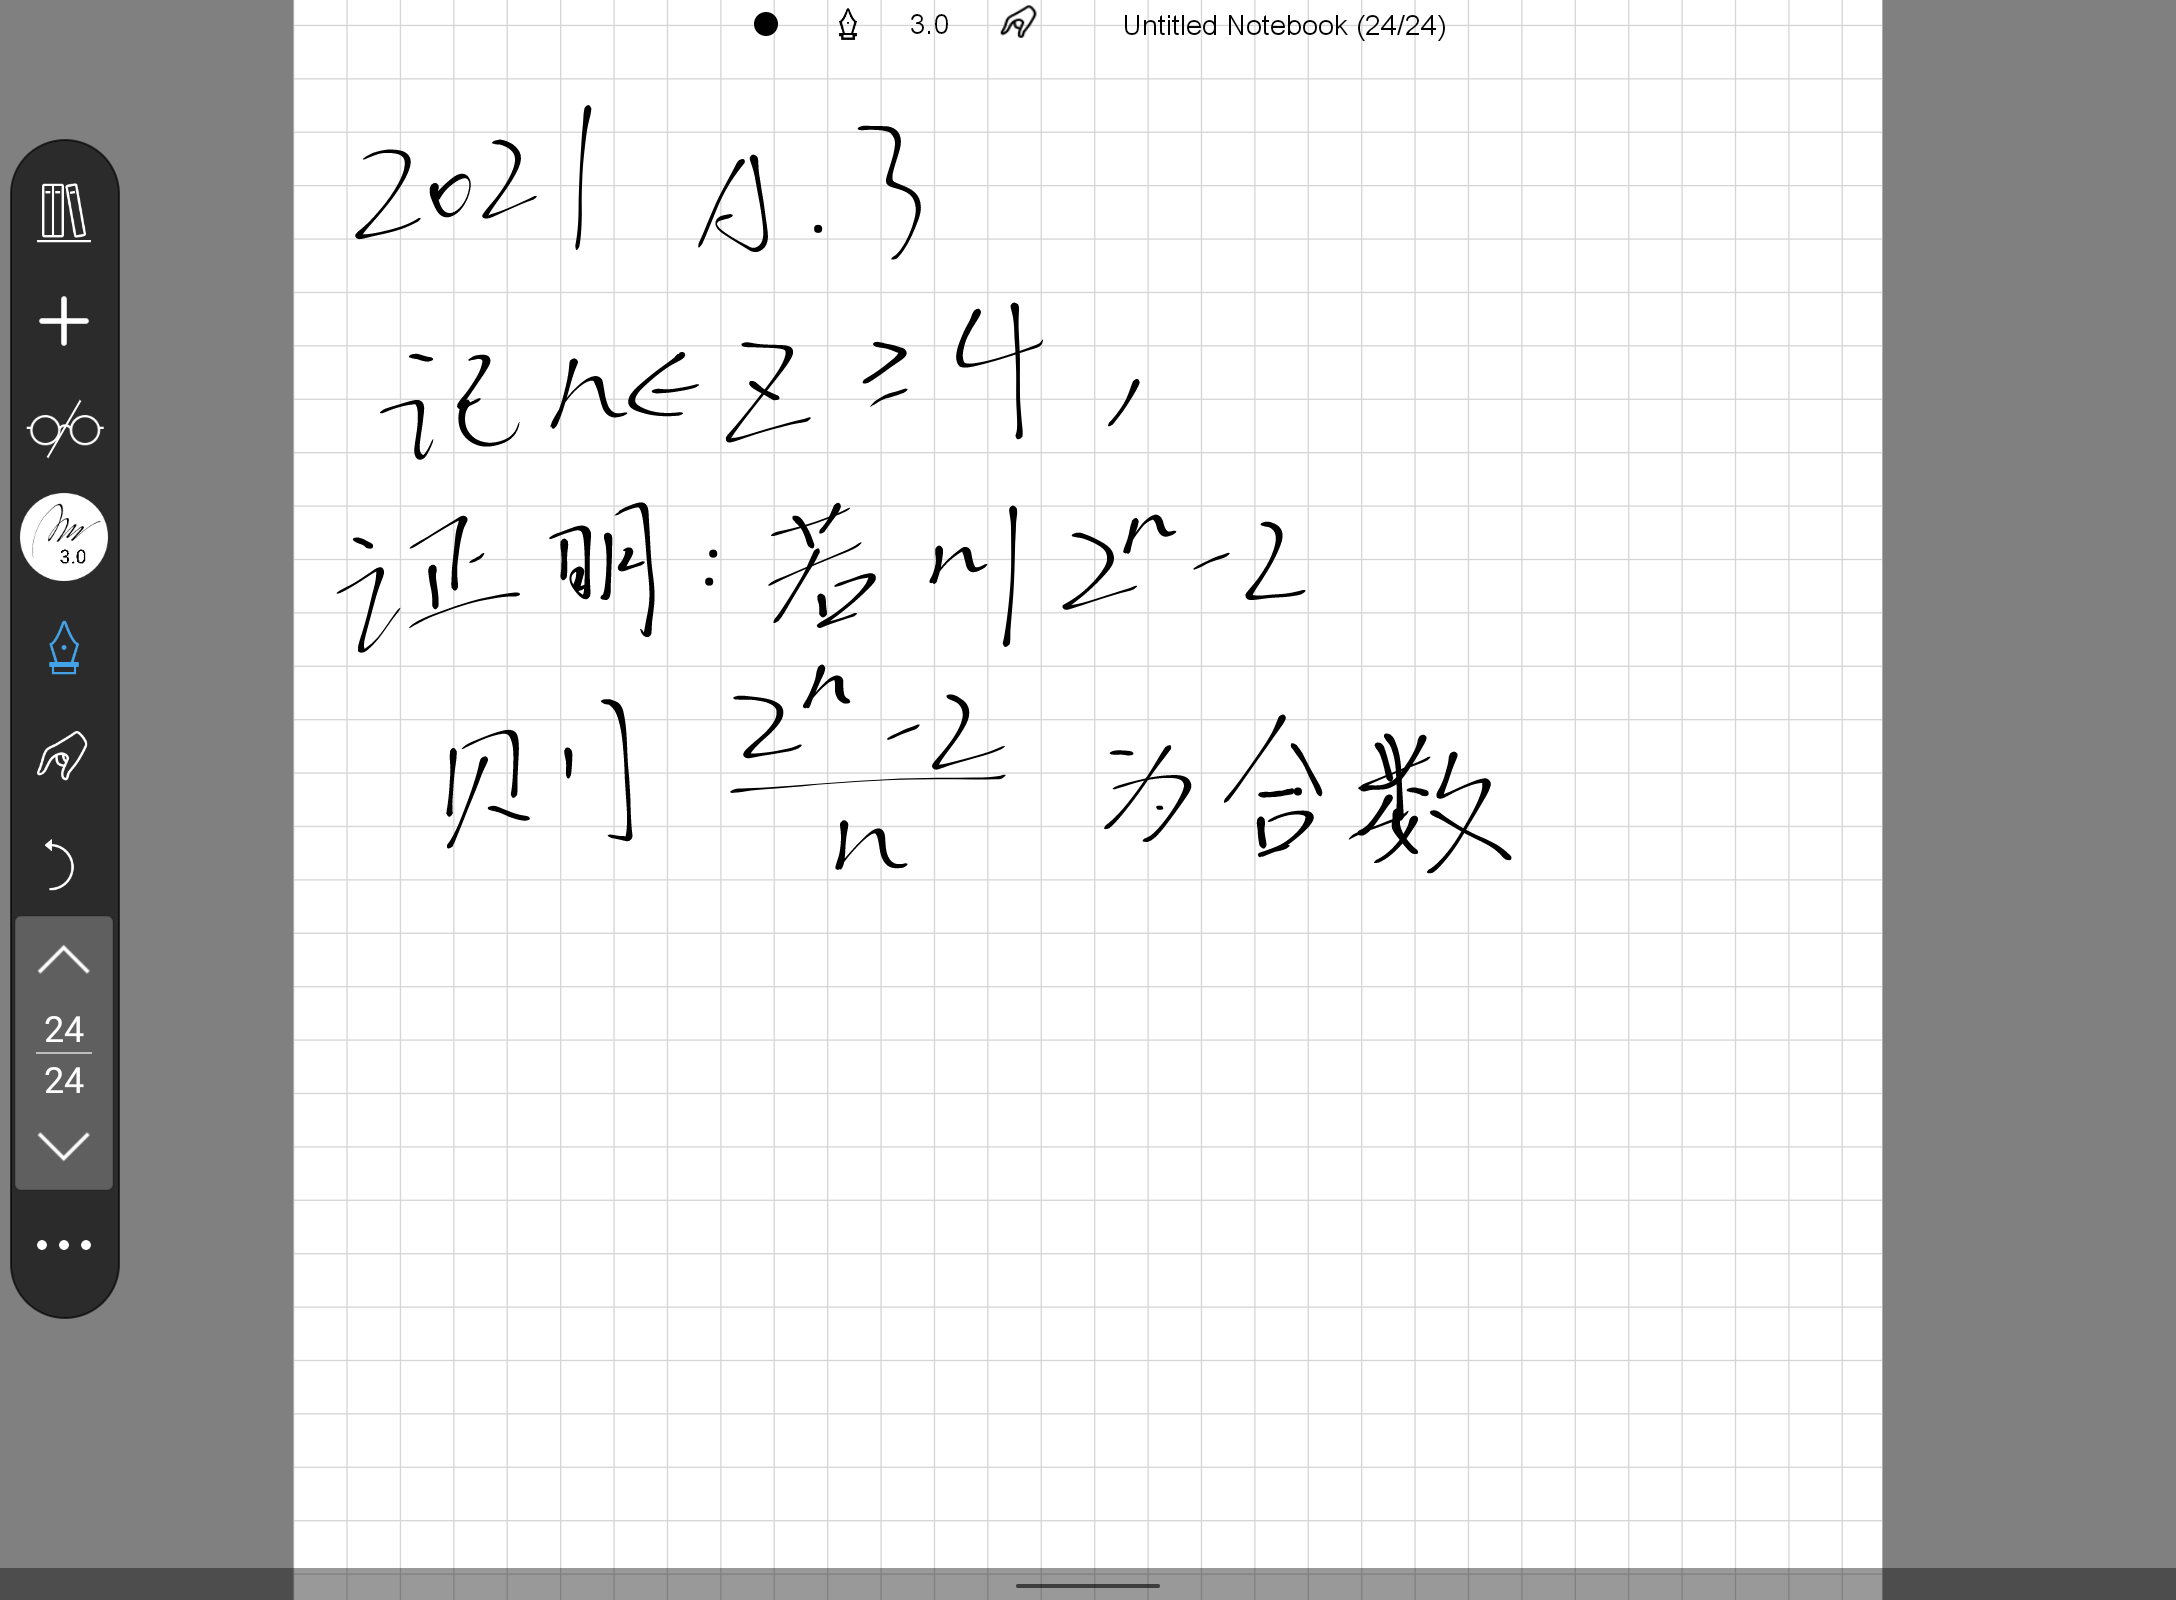 3.0 Untitled Notebook (24/24)
2021 A.3
记 n∈Z ≥ 4,
证明: 若 n | 2^n - 2
则 \frac{2^n - 2}{n} 为合数
3.0
24
24